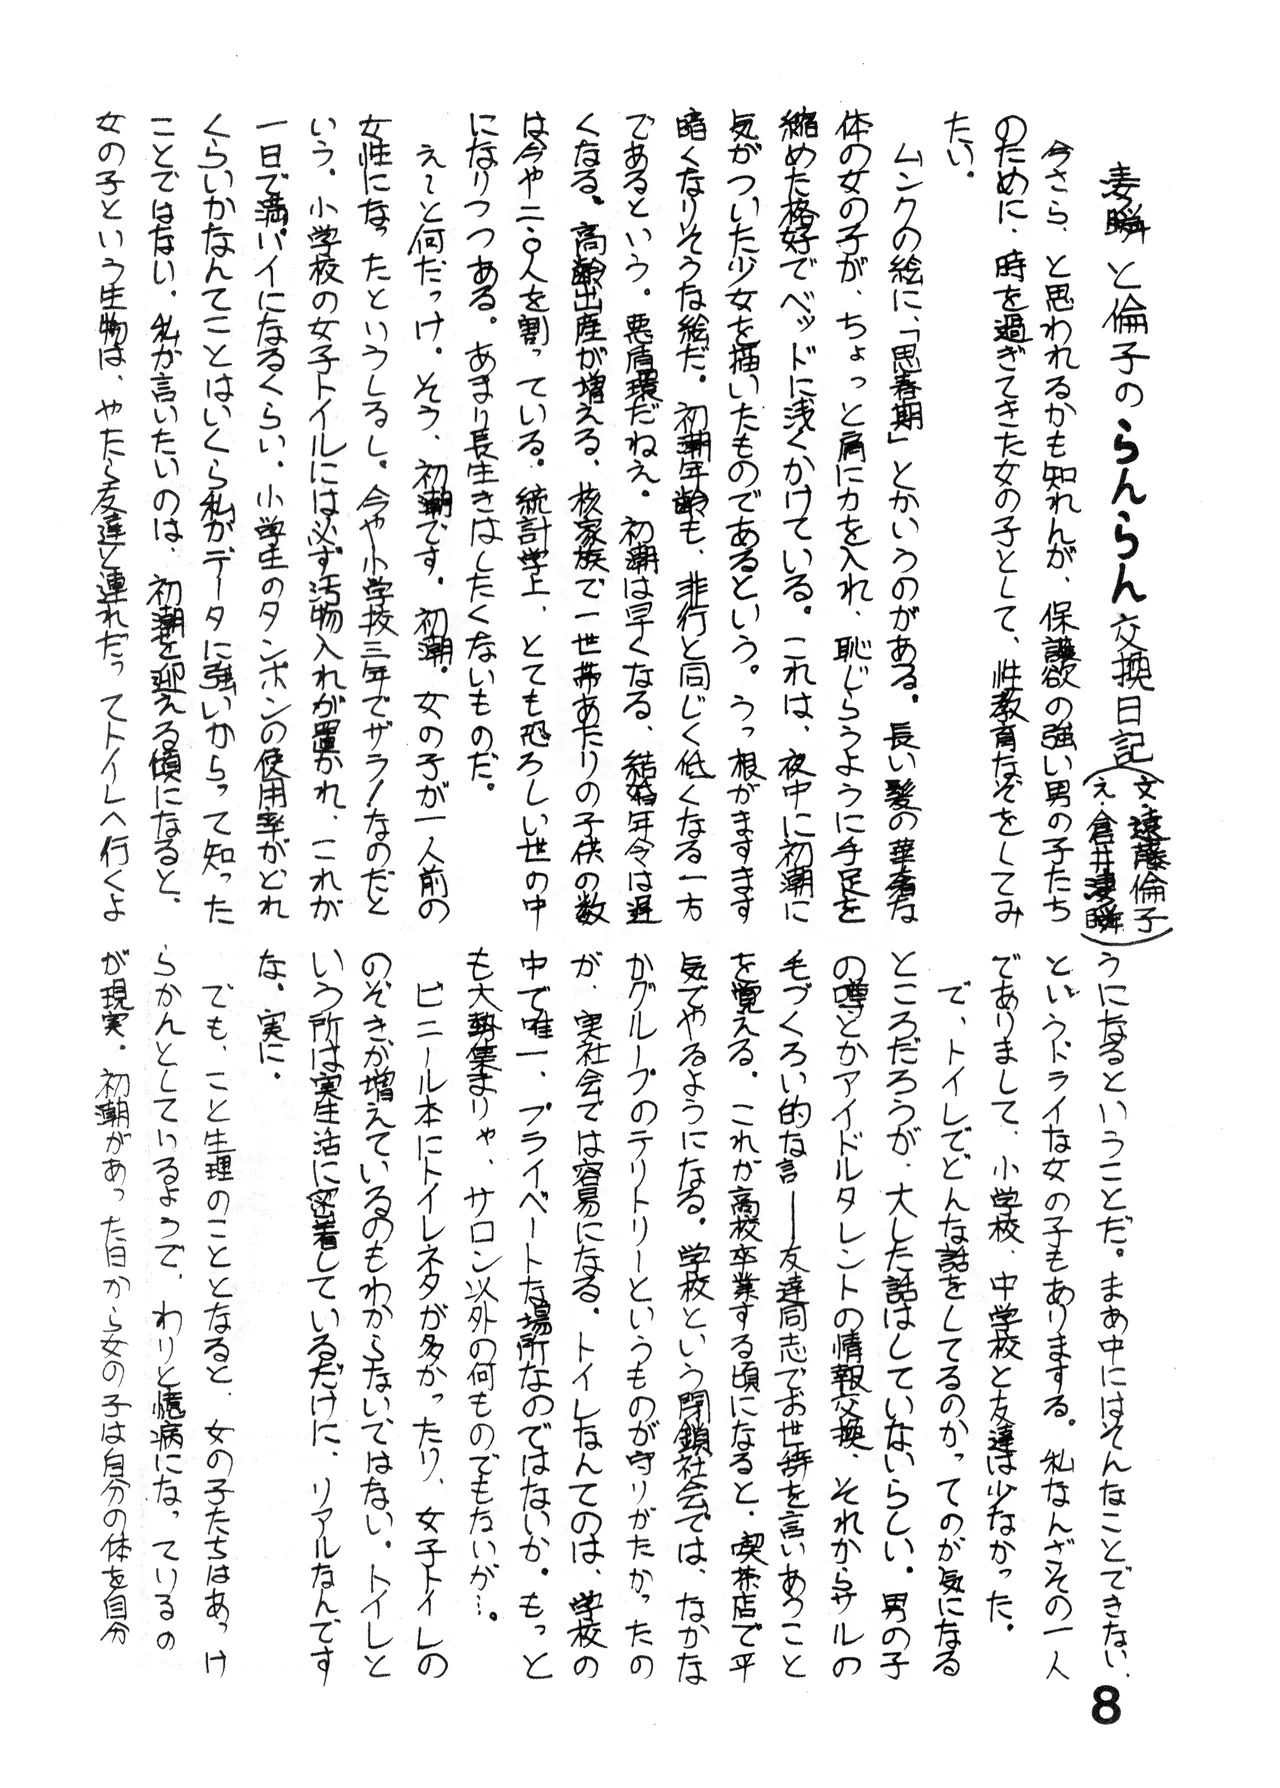 凄瞬と倫子のらんらん交換日記(文・遠藤倫子
え・倉井凄瞬)
今さら、と思われるかも知れんが、保護欲の強い男の子たち
のために、時を過ぎてきた女の子として、性教育なぞをしてみ
たい。
ムンクの絵に、「思春期」とかいうのがある。長い髪の華奢な
体の女の子が、ちょっと肩に力を入れ、恥じらうように手足を
縮めた格好でベッドに浅くかけている。これは、夜中に初潮に
気がついた少女を描いたものであるという。うっ根がますます
暗くなりそうな絵だ。初潮年齢も、非行と同じく低くなる一方
であるという。悪盾環だねえ。初潮は早くなる、結婚年令は遅
くなる。高齢出産が増える、核家族で一世帯あたりの子供の数
は今や二・〇人を割っている。統計学上、とても恐ろしい世の中
になりつつある。あまり長生きはしたくないものだ。
え〜と何だっけ。そう、初潮です。初潮。女の子が一人前の
女性になったというしるし。今や小学校三年でザラ!なのだと
いう。小学校の女子トイルには必ず汚物入れが置かれ、これが
一日で満パイになるくらい。小学生のタンポンの使用率がどれ
くらいかなんてことはいくら私がデータに強いからって知った
ことではない。私が言いたいのは、初潮を迎える頃になると、
女の子という生物は、やたら友達と連れだってトイレへ行くよ
うになるということだ。まあ中にはそんなことできない、
というドライな女の子もありまする。私なんざその一人
でありまして、小学校、中学校と友達は少なかった。
で、トイレでどんな話をしてるのかってのが気になる
ところだろうが、大した話はしていないらしい。男の子
の噂とかアイドルタレントの情報交換、それからサルの
毛づくろい的な言――友達同志でお世辞を言いあうこと
を覚える。これが高校卒業する頃になると、喫茶店で平
気でやるようになる。学校という閉鎖社会では、なかな
かグループのテリトリーというものが守りがたかったの
が、実社会では容易になる。トイレなんてのは、学校の
中で唯一、プライベートな場所なのではないか。もっと
も大勢集まりゃ、サロン以外の何ものでもないが…。
ビニール本にトイレネタが多かったり、女子トイレの
のぞきが増えているのもわからないではない。トイレと
いう所は実生活に密着しているだけに、リアルなんです
な。実に。
でも、こと生理のこととなると、女の子たちはあっけ
らかんとしているようで、わりと憶病になっているの
が現実。初潮があった日から女の子は自分の体を自分
8